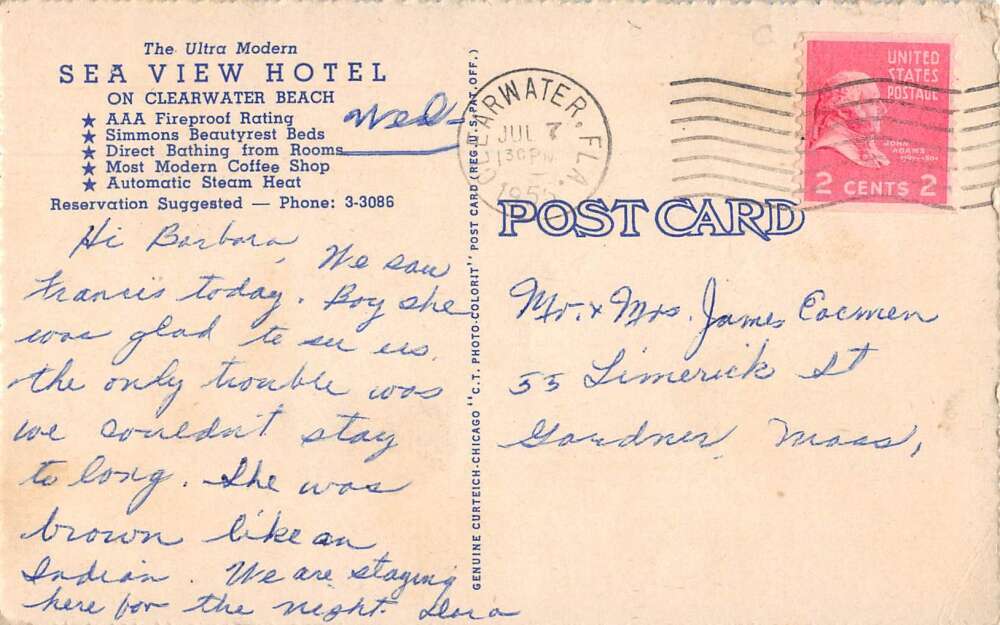 The Ultra Modern
SEA VIEW HOTEL
ON CLEARWATER BEACH
★ AAA Fireproof Rating
★ Simmons Beautyrest Beds
★ Direct Bathing from Rooms
★ Most Modern Coffee Shop
★ Automatic Steam Heat
Reservation Suggested — Phone: 3-3086
Wed-
Hi Barbara,
We saw
Francis today. Boy she
was glad to see us.
the only trouble was
we couldn't stay
to long. She was
brown like an
Indian. We are staying
here for the night. Dora
GENUINE CURTEICH-CHICAGO "C.T. PHOTO-COLORIT" POST CARD (REG. U.S. PAT. OFF.)
CLEARWATER, FLA.
JUL 7
130 PM
195
UNITED
STATES
POSTAGE
JOHN
ADAMS
2 CENTS 2
POST CARD
Mr. & Mrs. James
55 Limerick St
Gardner, Mass,